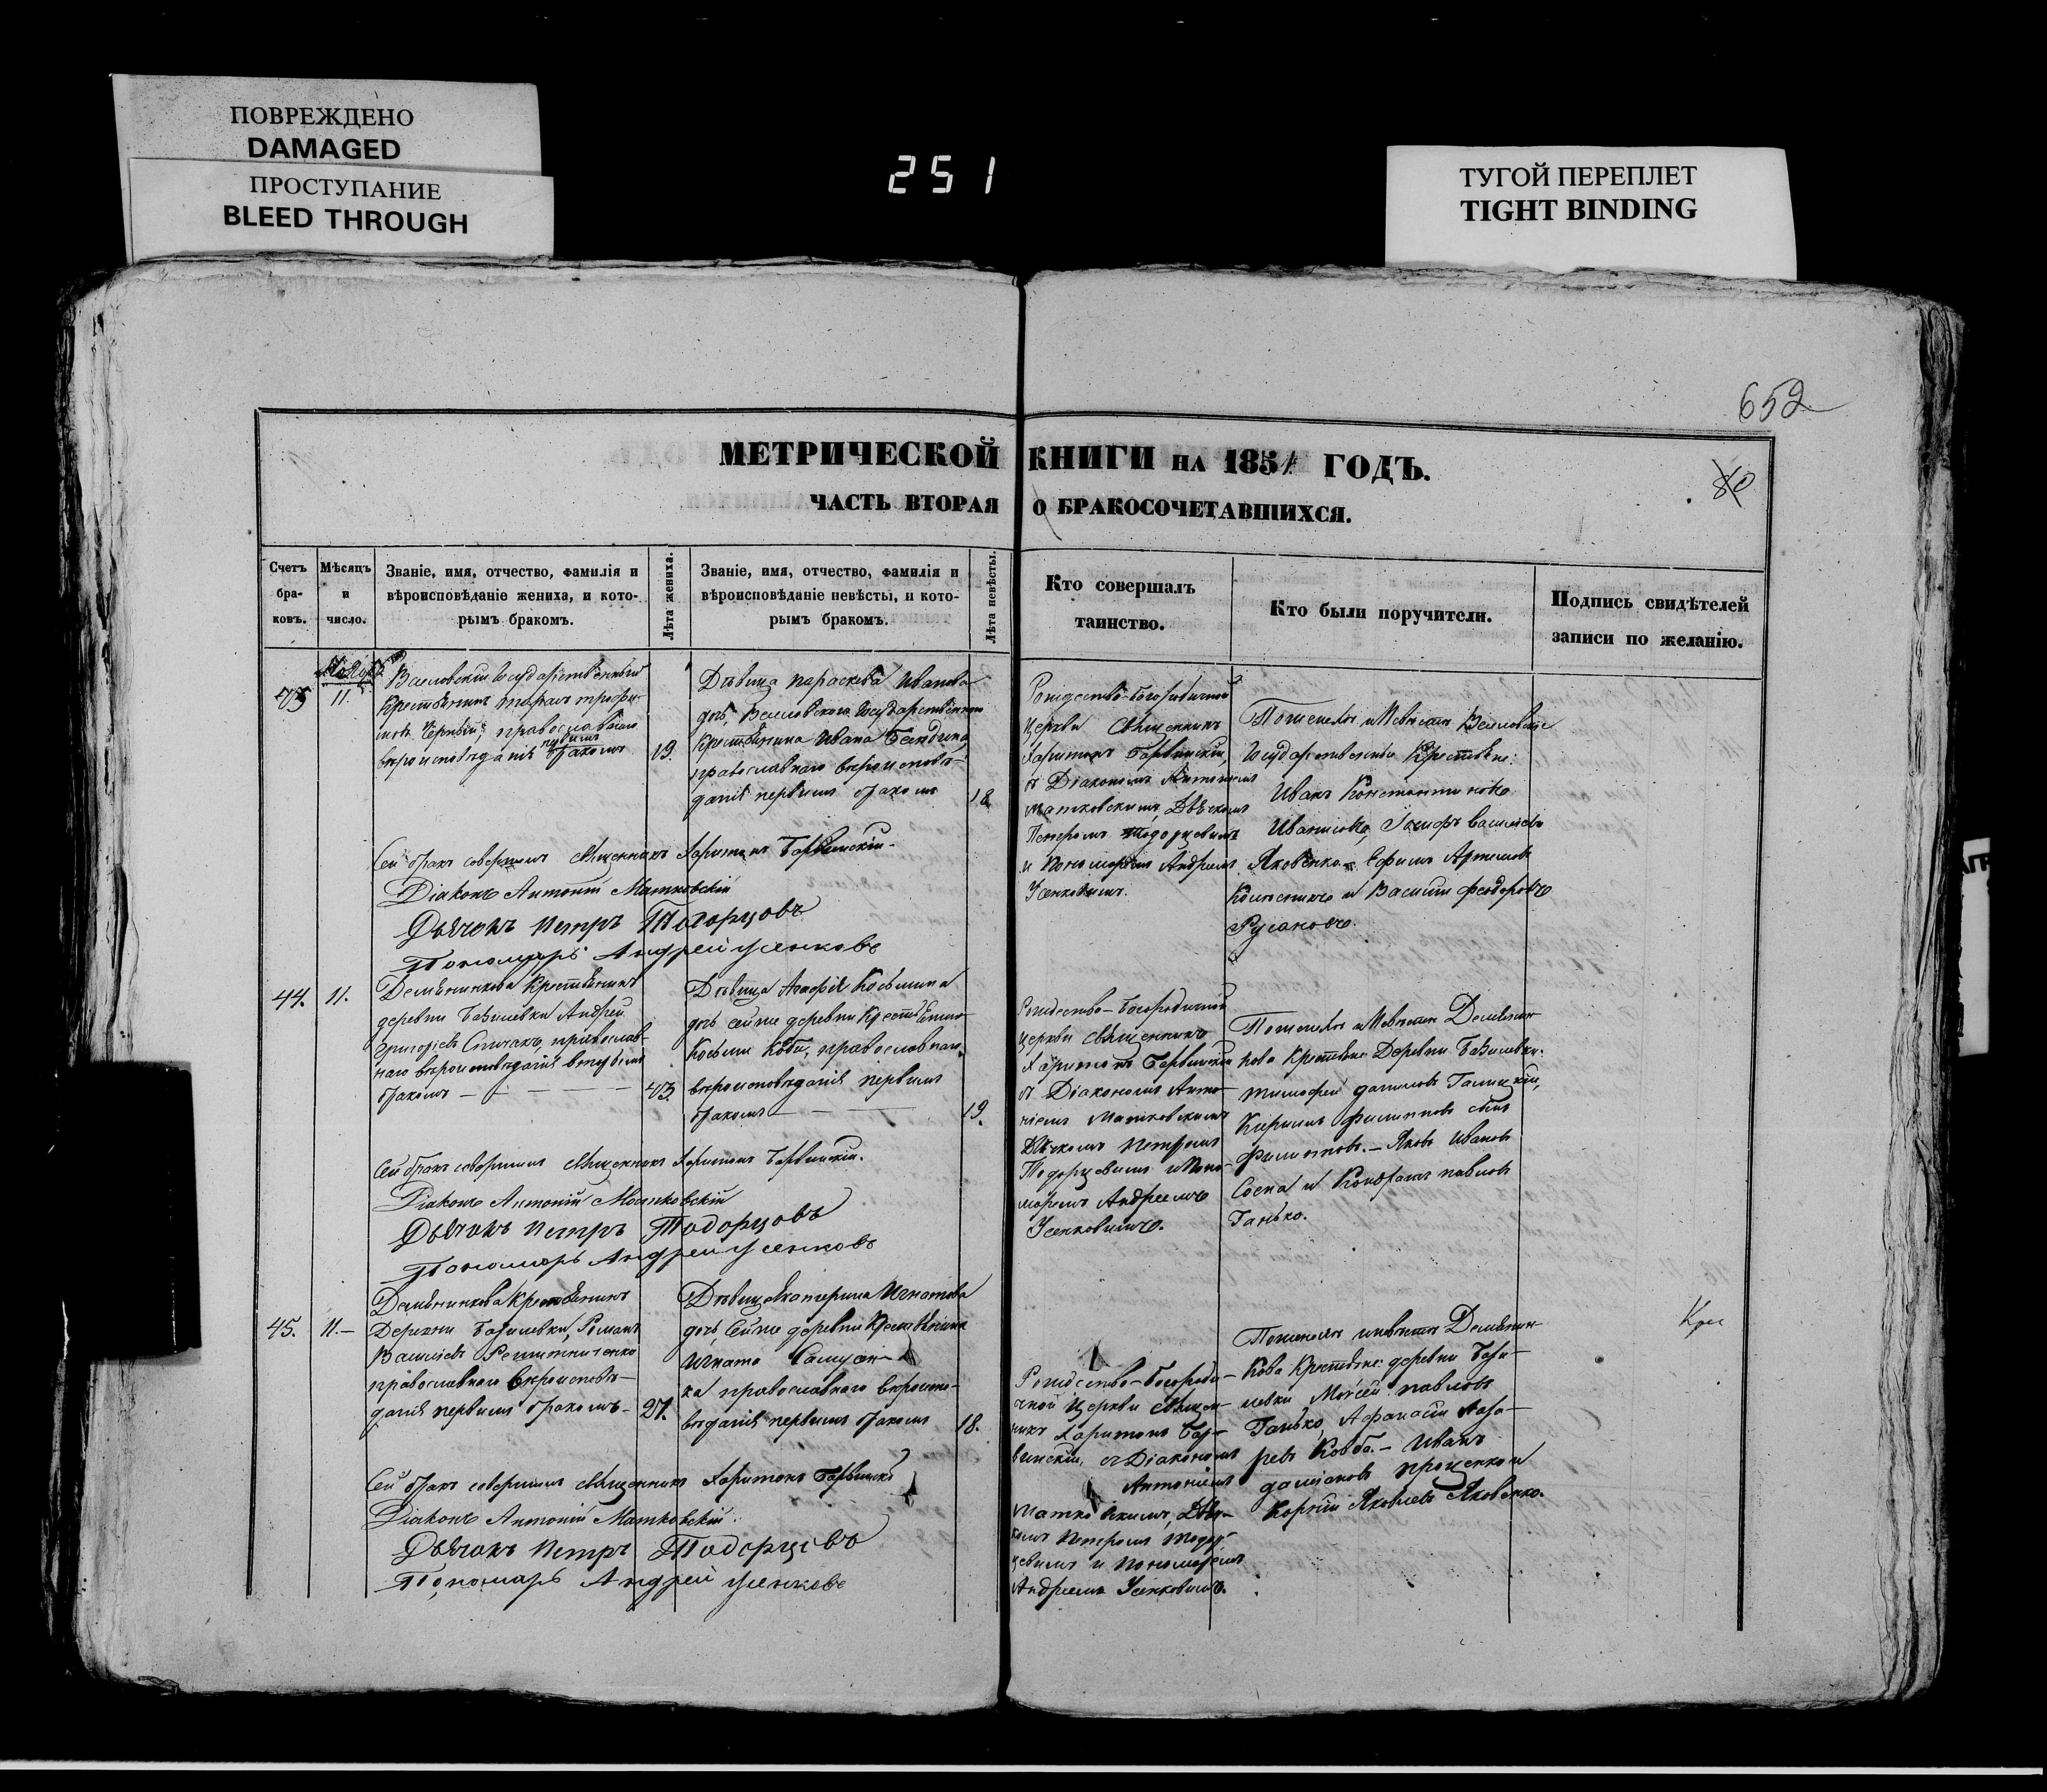 ПОВРЕЖДЕНО
DAMAGED
ПРОСТУПАНИЕ
BLEED THROUGH
251
ТУГОЙ ПЕРЕПЛЕТ
TIGHT BINDING
652
МЕТРИЧЕСКОЙ КНИГИ НА 1851 ГОДЪ.
80
ЧАСТЬ ВТОРАЯ О БРАКОСОЧЕТАВШИХСЯ.
Счетъ бра-ковъ.
Мѣсяцъ и число.
Званіе, имя, отчество, фамилія и
вѣроисповѣданіе жениха, и кото-
рымъ бракомъ.
Лѣта жениха.
Званіе, имя, отчество, фамилія и
вѣроисповѣданіе невѣсты, и кото-
рымъ бракомъ.
Лѣта невѣсты.
Кто совершалъ
таинство.
Кто были поручители.
Подпись свидѣтелей
записи по желанію.
43
11.
Государственный
Крестьянинъ
Черный, православнаго
вероисповѣданія первымъ бракомъ
19.
Дѣвица Параскева Иванова
дочь, Государственнаго
Крестьянина Ивана
православнаго вероисповѣ-
данія первымъ бракомъ
18
Рождество-Богородичной
Церкви Священникъ
Харитонъ Барвинскій,
съ Діакономъ Антоніемъ
Матковскимъ, Дьячкомъ
Петромъ Тодорцевымъ
и Пономаремъ Андреемъ
Усенковымъ.
Государственные Крестьяне:
Иванъ Константиновъ
Іосифъ Васильевъ
Яковенко Ефимъ Артемовъ
и Василій Феодоровъ
Русановъ.
Сей бракъ совершилъ Священникъ Харитонъ Барвинскій
Діаконъ Антоній Матковскій
Дьячокъ Петръ Тодорцовъ
Пономарь Андрей Усенковъ
44.
11.
Крестьянинъ
деревни Базилевки Андрей
Григорьевъ православ-
наго вероисповѣданія вторымъ
бракомъ
43.
Дѣвица Агафія Косьмина
дочь сей же деревни Крестьянина
Косьмы Кобы, православнаго
вероисповѣданія первымъ
бракомъ
19.
Рождество-Богородичной
церкви Священникъ
Харитонъ Барвинскій
съ Діакономъ Анто-
ніемъ Матковскимъ
Дьячкомъ Петромъ
Тодорцевымъ и Поно-
маремъ Андреемъ
Усенковымъ.
Крестьяне Деревни Базилевки
Тимофей Даниловъ Галицкій,
Филипповъ сынъ
Филипповъ.— Яковъ Ивановъ
Сосна и Кондратъ Павловъ
Ганько.
Сей бракъ совершилъ Священникъ Харитонъ Барвинскій.
Діаконъ Антоній Матковскій
Дьячокъ Петръ Тодорцовъ
Пономарь Андрей Усенковъ
45.
11.—
Крестьянинъ
Деревни Базилевки, Романъ
Васильевъ
православнаго вероисповѣ-
данія первымъ бракомъ
27.
Дѣвица Екатерина Игнатова
дочь, сей же деревни Крестьянина
Игната
православнаго вероиспо-
вѣданія первымъ бракомъ
18.
Рождество-Богороди-
чной Церкви Священ-
никъ Харитонъ Бар-
винскій, съ Діакономъ
Антоніемъ
Матковскимъ, Дья-
комъ Петромъ Тодор-
цевымъ и Пономаремъ
Андреемъ Усенковымъ.
Крестьяне деревни Бази-
левки Моисей Павловъ
Ганько, Афанасій Лаза-
ревъ Кобба.— Иванъ
Проценко и
Корній Яковлевъ Яковенко.
Сей бракъ совершилъ Священникъ Харитонъ Барвинскій
Діаконъ Антоній Матковскій
Дьячокъ Петръ Тодорцовъ
Пономарь Андрей Усенковъ